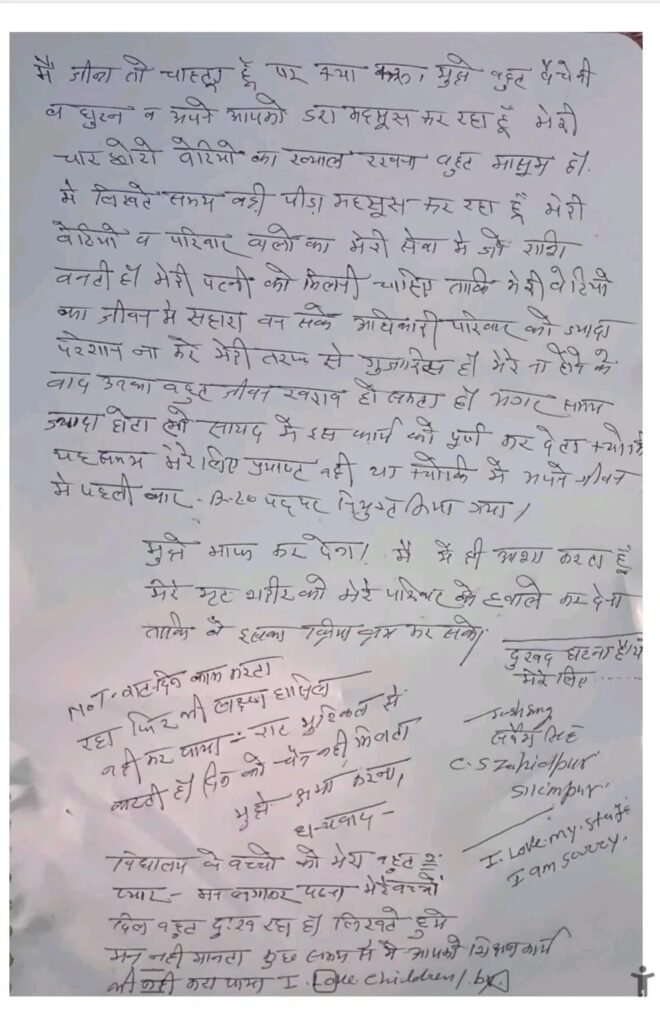 मै जीना तो चाहता हूँ पर क्या करू। मुझे बहुत बैचेनी
व घुटन व अपने आपको डरा महसूस कर रहा हूँ मेरी
चार छोटी बेटियो का ख्याल रखना बहुत मासूम हो.
मे लिखते समय बडी पीडा महसूस कर रहा हूँ मेरी
बेटियो व परिवार वालो का मेरी सेवा मे जो राशि
बनती हो मेरी पत्नी को मिलनी चाहिए ताकि मेरी बेटियो
का जीवन मे सहारा बन सके अधिकारी परिवार को ज्यादा
परेशान ना करे मेरी तरफ से गुजारिस हो मेरे ना होने के
बाद उनका बहुत जीवन खराब हो सकता हो अगर समय
ज्यादा होता तो सायद मै इस कार्य को पूर्ण कर देता क्योकि
यह समय मेरे लिए प्रयाप्ट नही था क्योकि मै अपने जीवन
मे पहली बार पद पर नियुक्त किया गया।
मुझे माफ कर देना। मै मै ही आशा करता हूँ
मेरे मृत शरीर को मेरे परिवार के हवाले कर देना
ताकि वे इसका क्रिया क्रम कर सके।
दुखद घटना है ये
मेरे लिए .....
NOT- रात दिन काम करता
रहा फिर भी लक्ष्य हासिल
नही कर पाया - रात मुश्किल से
कटती हो दिन को चैन नही मिलता
मुझे क्षमा करना।
धन्यवाद -
C.S Zahidpur
I. Love. my. Staff
I am sorry.
विद्यालय के बच्चो को मेरा बहुत २
प्यार - मन लगाकर पढना मेरे बच्चो
दिल बहुत दुःख रहा हो लिखते हुये
मन नही मानता कुछ समय से मै आपको शिक्षण कार्य
भी नही करा पाया I. Love children/.